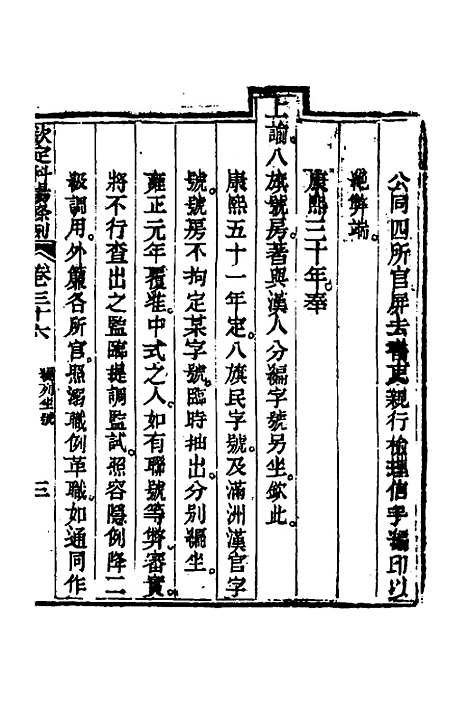 公同四所官屏去書吏親行檢理信手編印以
絕弊端。
康熙三十年奉
上諭。八旗號房著與漢人分編字號另坐。欽此。
康熙五十一年定。八旗民字號。及滿洲漢官字
號。號房不拘定某字號。臨時抽出。分別編坐。
雍正元年覆准。中式之人。如有聯號等弊審實。
將不行查出之監臨提調監試。照容隱例降二
級調用。外簾各所官。照溺職例革職。如通同作
欽定科場條例 卷三十六 編列坐號 三